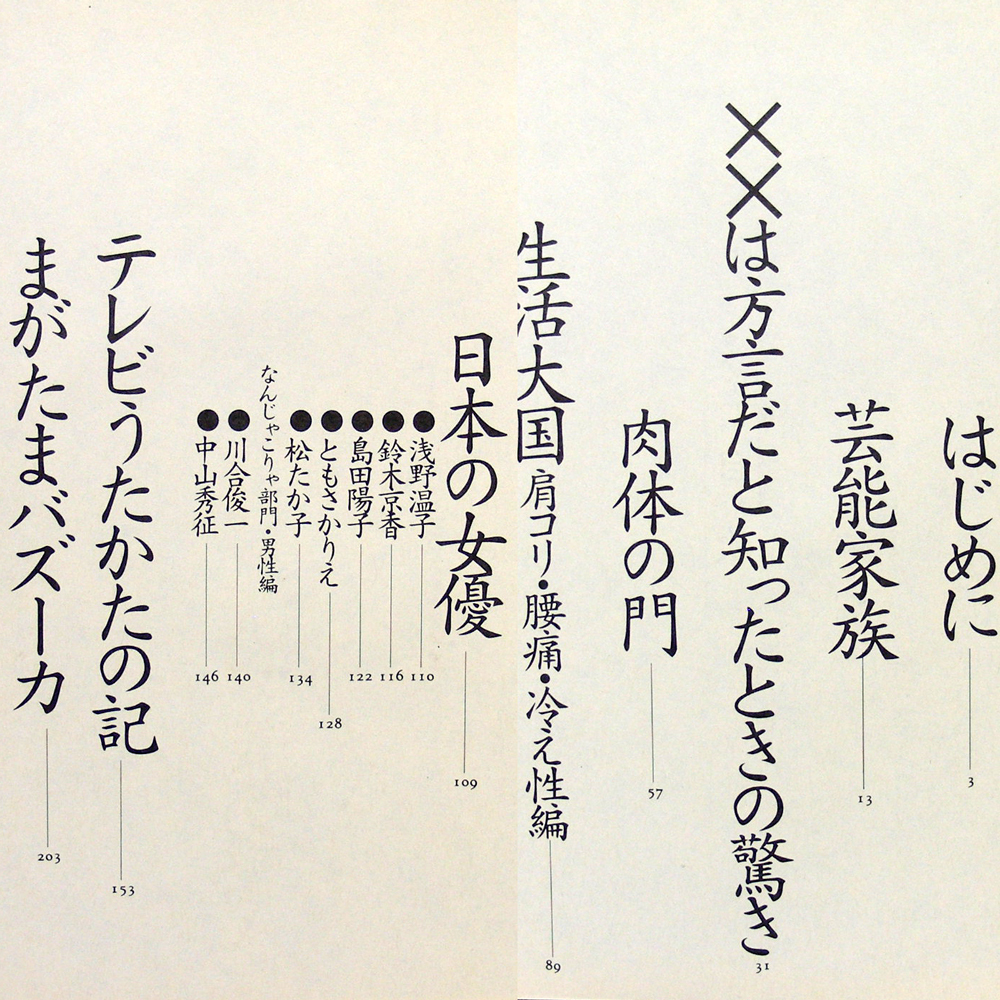 はじめに 3
芸能家族 13
××は方言だと知ったときの驚き 31
肉体の門 57
生活大国 肩コリ・腰痛・冷え性編 89
日本の女優 109
●浅野温子 110
●鈴木京香 116
●島田陽子 122
●ともさかりえ 128
●松たか子 134
なんじゃこりゃ部門・男性編
●川合俊一 140
●中山秀征 146
テレビうたかたの記 153
まがたまバズーカ 203